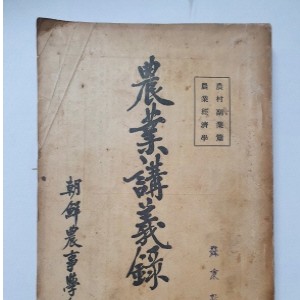 農村副業篇
農業經濟學
農業講義錄
朝鮮農事學